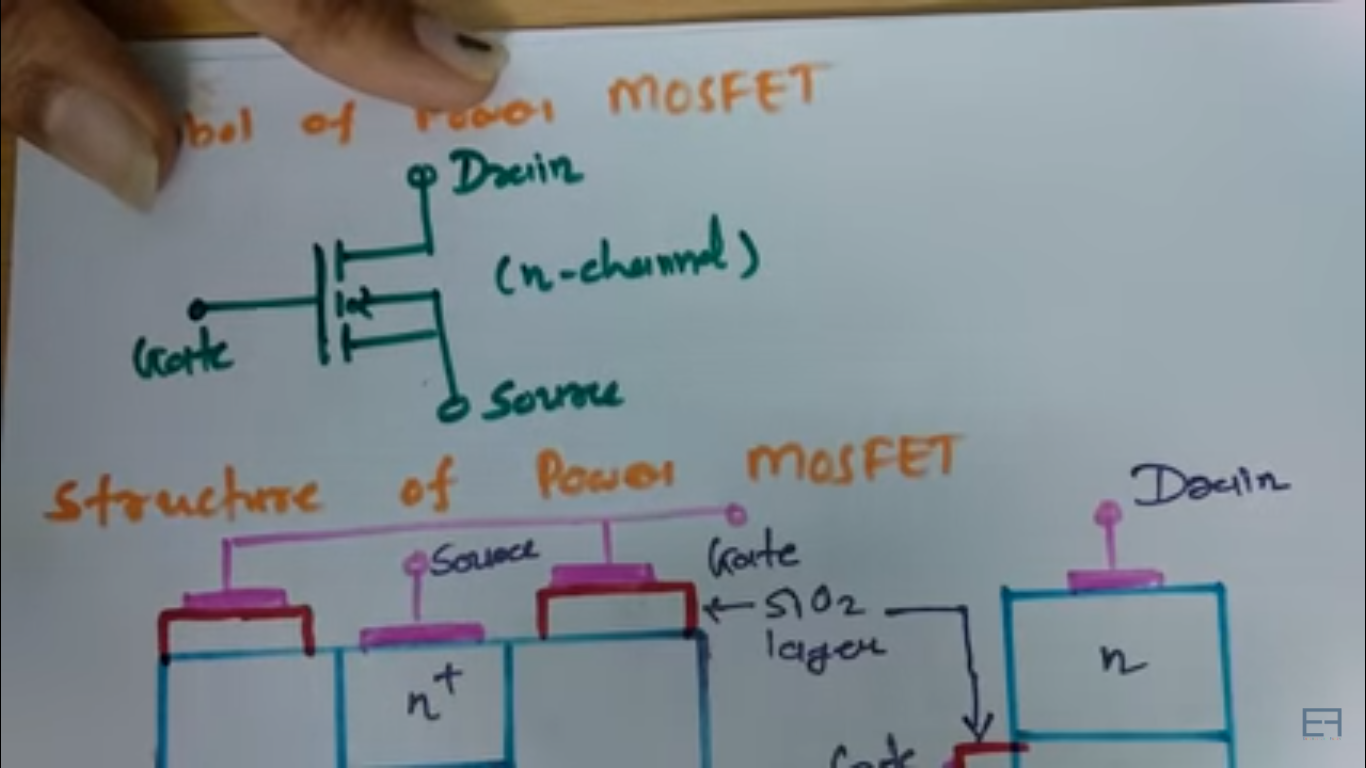 bol of Power MOSFET
Drain
(n-channel)
Gate
Source
Structure of Power MOSFET
Drain
Source
Gate
SiO2
layer
n
n+
Gate
EF